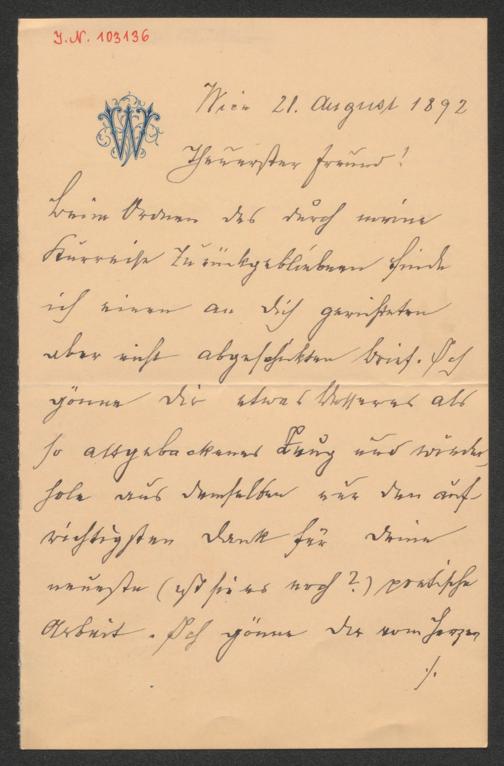 J. N. 103136
W
Wien 21. August 1892
Theuerster Freund!
Beim Ordnen des durch meine
Kurreise Zurückgebliebenen finde
ich einen an Dich gerichteten
aber nicht abgeschickten Brief. Ich
gönne Dir etwas Besseres als
so altgebackenes Zeug und wieder-
hole aus demselben nur den auf-
richtigsten Dank für Deine
neueste (ist sie es noch?) poetische
Arbeit. Ich gönne Dir vom Herzen
./.